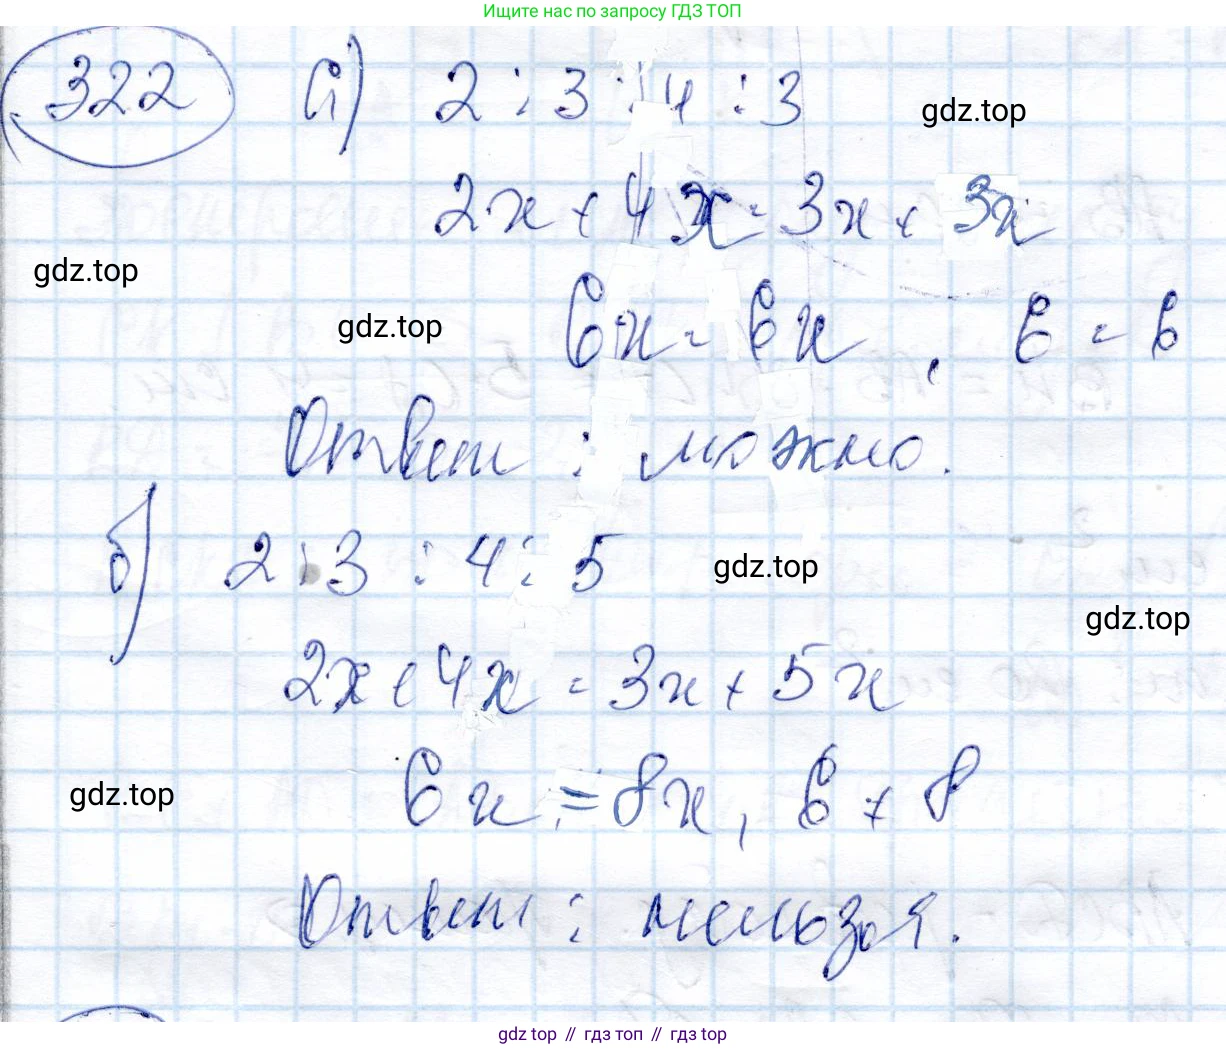 Ищите нас по запросу ГДЗ ТОП
322 а) 2 : 3 : 4 : 3
gdz.top
2x + 4x = 3x + 3x
gdz.top
gdz.top
6x = 6x , 6 = 6
Ответ : можно.
б) 2 : 3 : 4 : 5
gdz.top
gdz.top
2x + 4x = 3x + 5x
6x = 8x , 6 ≠ 8
gdz.top
Ответ : нельзя.
gdz top // гдз топ // гдз top